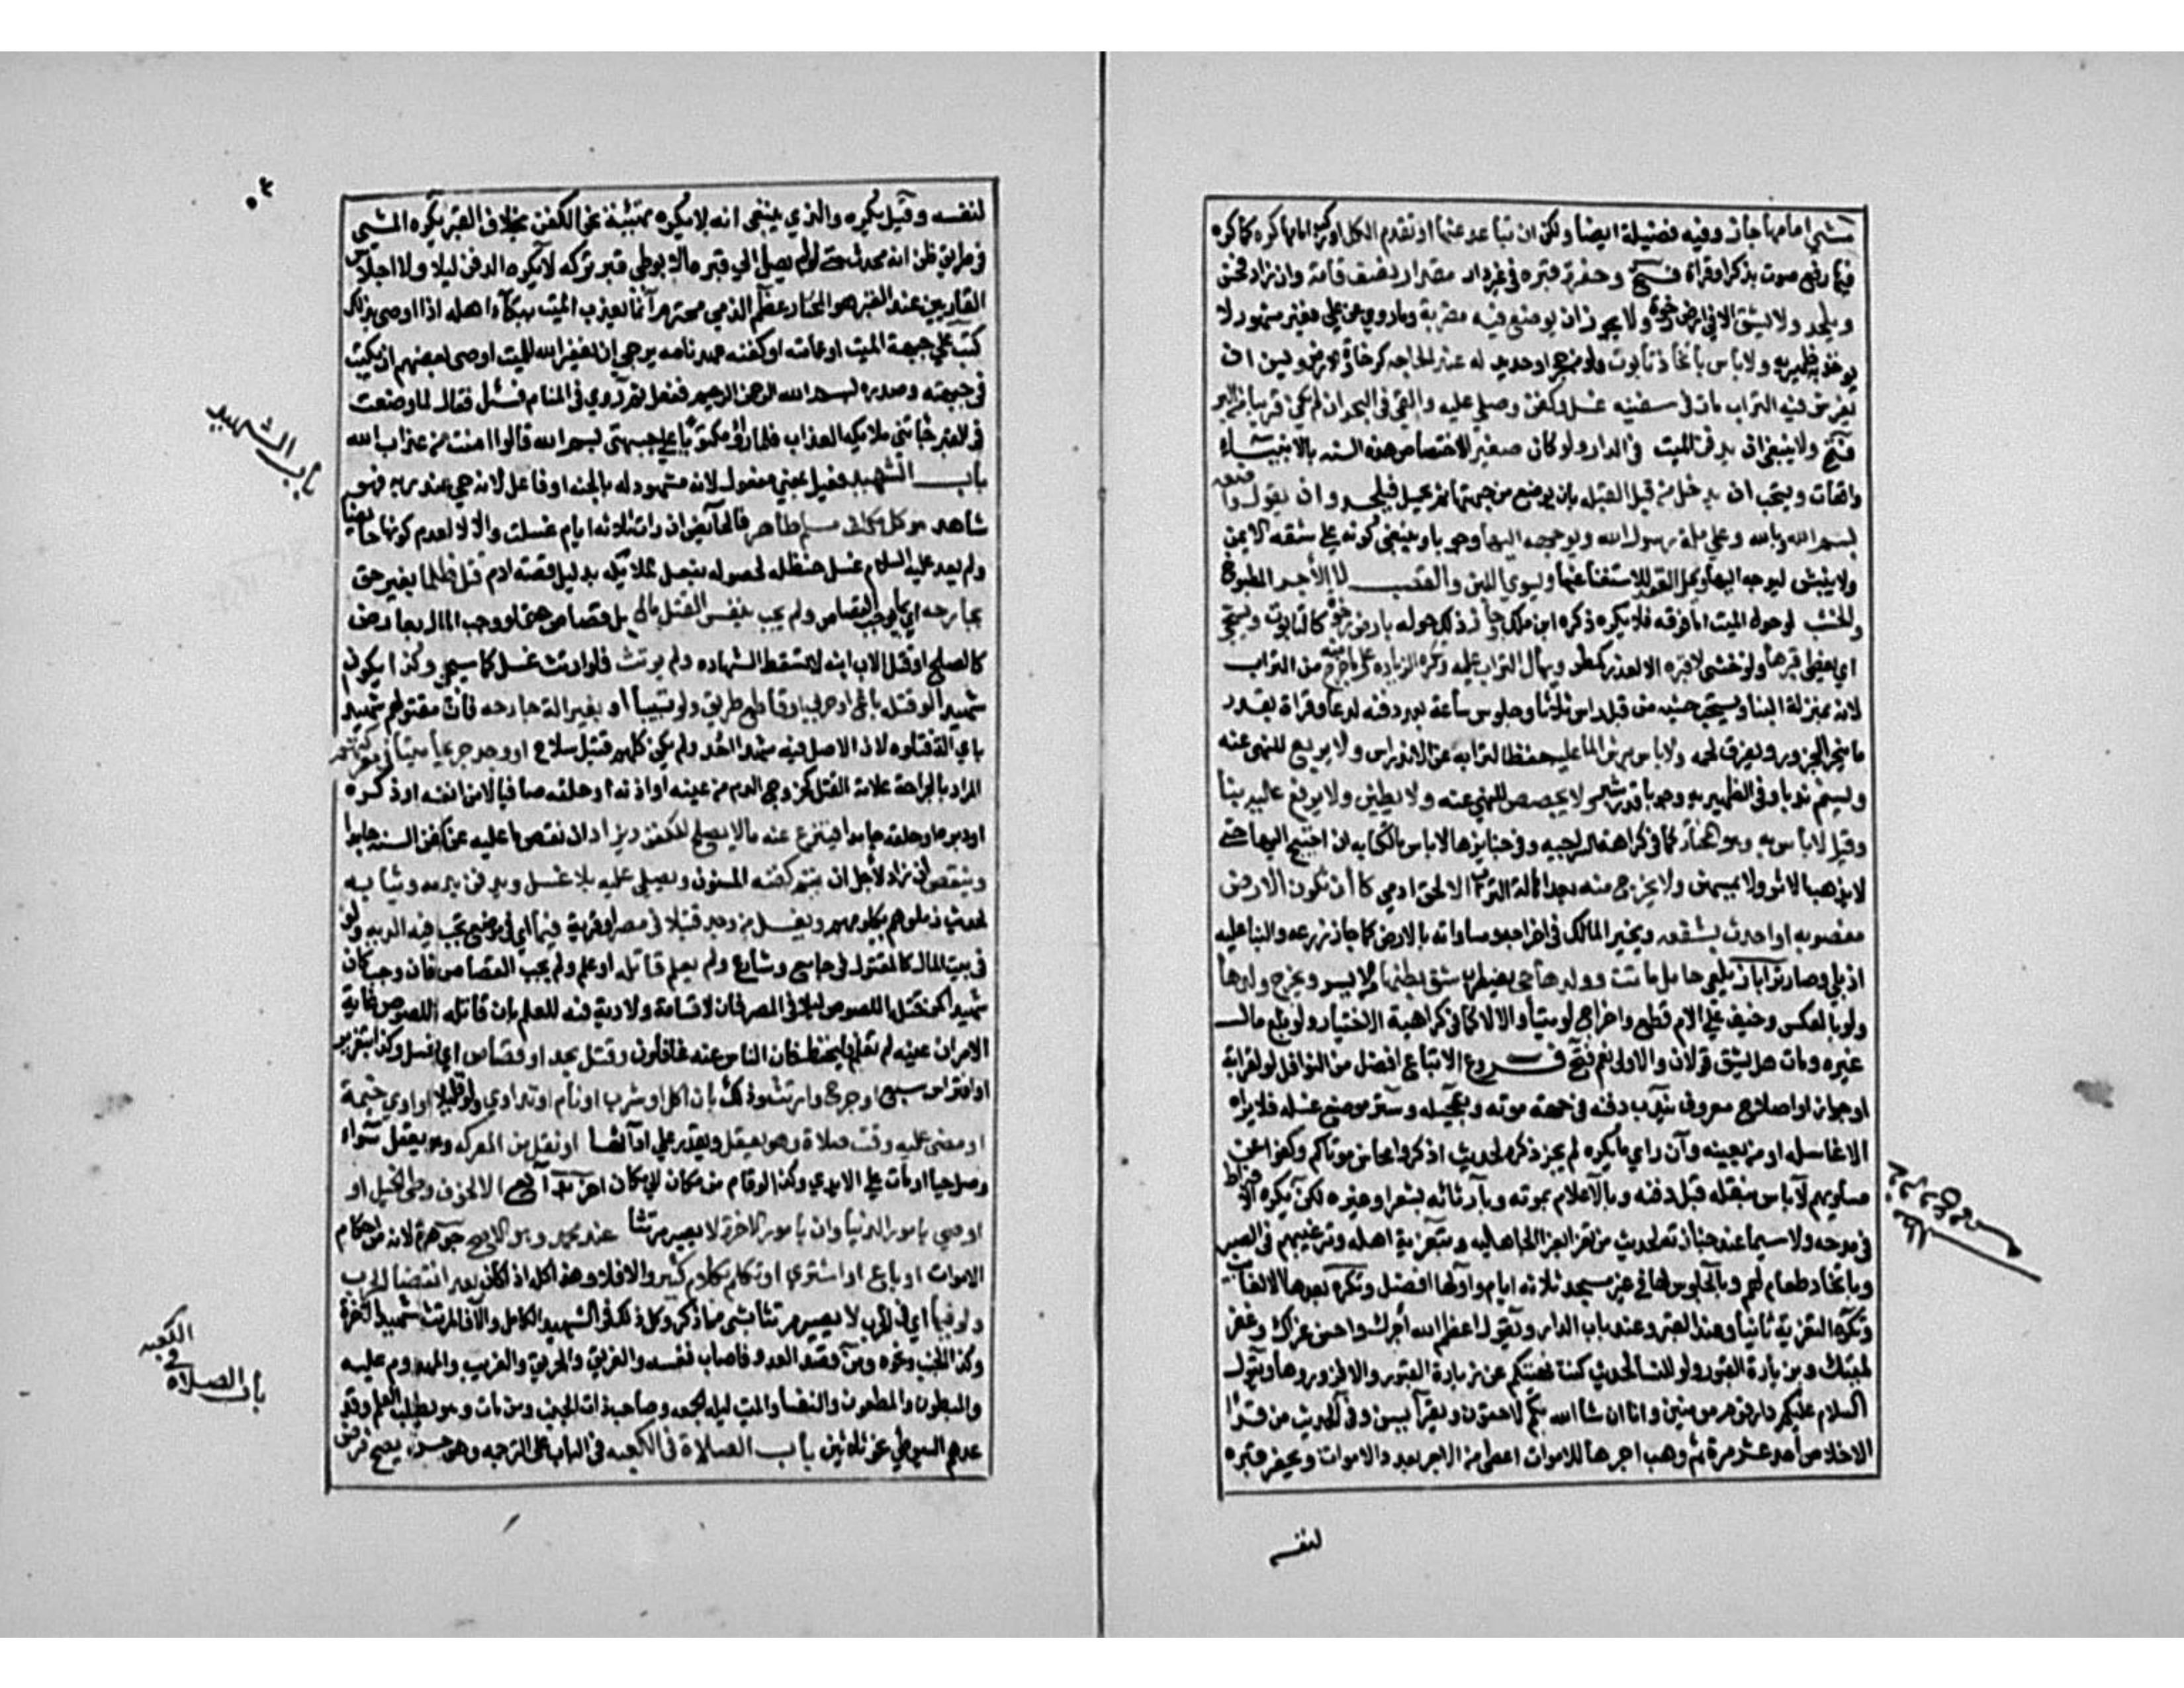 مشى امامها جاز وفيه فضيلة ايضا ولكن ان تباعد عنها او تقدم الكل او ركب امامها كره كما كره
فيها رفع صوت بذكر او قراة فتح وحفر قبره في غير دار مقدار نصف قامة وان زاد فحسن
ويلحد ولا يشق الا في ارض رخوة ولا يجوز ان يوضع فيه مضربة وما روي عن علي فغير مشهور لا
يوخذ به ظهيريه ولا باس باتخاذ تابوت ولو من حجر او حديد له عند الحاجه كرخاوة الارض ويسن ان
يفرش فيه التراب مات في سفينه غسل وكفن وصلي عليه والقي في البحر ان لم يكن قريبا من البر
فتح ولا ينبغي ان يدفن الميت في الدار ولو كان صغيرا لاختصاص هذه السنه بالانبياء
واقعات ويستحب ان يدخل من قبل القبله بان يوضع من جهتها ثم يحمل فيلحد وان يقول واضعه
بسم الله وبالله وعلى ملة رسول الله ويوجه اليها وجوبا وينبغي كونه على شقه الايمن
ولا ينبش ليوجه اليها وتحل العقد للاستغناء عنها ويسوى اللبن والقصب لا الآجر المطبوخ
والخشب لو حول الميت اما فوقه فلا يكره ذكره ابن ملك وجاز ذلك حوله بارض رخوة كالتابوت ويسجى
اي يغطى قبرها ولو خنثى لا قبره الا لعذر كمطر ويهال التراب عليه وتكره الزياده على ما خرج منه من التراب
لانه بمنزلة البنا ويستحب حثيه من قبل راسه ثلاثا وجلوس ساعة بعد دفنه لدعا وقراة بقدر
ما ينحر الجزور ويفرق لحمه ولا باس برش الما عليه حفظا لترابه عن الاندراس ولا يربع للنهي عنه
ويسنم ندبا وفي الظهيريه وجوبا قدر شبر ولا يجصص للنهي عنه ولا يطين ولا يرفع عليه بنا
وقيل لا باس به وهو المختار كما في كراهة السراجيه وفي جنايزها لا باس بالكتابه ان احتيج اليها حتى
لا يذهب الاثر ولا يمتهن ولا يخرج منه بعد اهالة التراب الا لحق ادمي كا أن تكون الارض
مغصوبه او اخذت بشفعه ويخير المالك في اخراجه ومساواته بالارض كما جاز زرعه والبنا عليه
اذا بلي وصار ترابا زيلعي حامل ماتت وولدها حي يضطرب شق بطنها من الايسر ويخرج ولدها
ولو بالعكس وخيف على الام قطع واخرج لو ميتا والا لا كما في كراهية الاختيار ولو بلع مال
غيره ومات هل يشق قولان والاولى نعم فتح فروع الاتباع افضل من النوافل لو لقرابة
او جوار او صلاح معروف يندب دفنه في جهة موته وتعجيله وستر موضع غسله فلا يراه
الا غاسله او من يعينه وآن راي ما يكره لم يجز ذكره لحديث اذكروا محاسن موتاكم وكفوا عن
مساويهم لا باس بنقله قبل دفنه وبالاعلام بموته وبآرثائه بشعر او غيره لكن يكره الافراط
في مدحه ولا سيما عند جنازته لحديث من تعزا بعزا الجاهليه وبتعزية اهله وترغيبهم في الصبر
وباتخاذ طعام لهم وبالجلوس لها في غير مسجد ثلاثه ايام واولها افضل وتكره بعدها الا لغايب
وتكره التعزية ثانيا وعند القبر وعند باب الدار ويقول اعظم الله أجرك واحسن عزاك وغفر
لميتك وبزيارة القبور ولو للنسا لحديث كنت نهيتكم عن زيارة القبور والا فزوروها ويقول
السلام عليكم دار قوم مومنين وانا ان شا الله بكم لاحقون ويقرآ يس وفي الحديث من قرا
الاخلاص احد عشر مرة ثم وهب اجرها للاموات اعطي من الاجر بعدد الاموات ويحفر قبره
لنفسه
لنفسه وقيل يكره والذي ينبغي انه لا يكره تهيئة نحو الكفن بخلاف القبر يكره المشي
في طريق ظن انه محدث حتى لو لم يصل الى قبره الا بوطي قبر تركه لا يكره الدفن ليلا ولا اجلاس
القاريين عند القبر هو المختار عظم الذمي محترم آنما يعذب الميت ببكآء اهله اذا اوصى بذلك
كتب على جبهة الميت او عمامته او كفنه عهدنامه يرجى ان يغفر الله للميت اوصى بعضهم ان يكتب
في جبهته وصدره بسم الله الرحمن الرحيم ففعل ثم رؤي في المنام فسئل فقال لما وضعت
في القبر جاتني ملايكه العذاب فلما راؤ مكتوبا على جبهتي بسم الله قالوا امنت من عذاب الله
باب الشهيد فعيل بمعني مفعول لانه مشهود له بالجنه او فاعل لانه حي عند ربه فهو
شاهد هو كل مكلف مسلم طاهر فالحآئض ان رات ثلاثه ايام غسلت والا لا لعدم كونها حايضا
ولم يعد عليه السلام غسل حنظله لحصوله بفعل الملايكه بدليل قصته ادم قتل ظلما بغير حق
بجارحه اي بما يوجب القصاص ولم يجب بنفس القتل مال بل قصاص حتى لو وجب المال بعارض
كالصلح او قتل الاب ابنه لا تسقط الشهاده ولم يرتث فلو ارتث غسل كما سيجي وكذا يكون
شهيدا لو قتله باغ او حربي او قاطع طريق ولو تسببا أو بغير الة جارحه فان مقتولهم شهيد
باي الة قتلوه لان الاصل فيه شهدا احد ولم يكن كلهم قتيل سلاح او وجد جريحا ميتا في معركتهم
المراد بالجراحة علامة القتل كخروج الدم من عينه او اذنه او حلقه صافيا لا من انفه او ذكره
او دبره او حلقه جامدا فينزع عنه ما لا يصلح للكفن ويزاد ان نقص ما عليه عن كفن السنه
وينقص ان زاد لأجل ان يتم كفنه المسنون ويصلى عليه بلا غسل ويدفن بدمه وثيابه
لحديث زملوهم بكلومهم ويغسل من وجد قتيلا في مصر او قرية فيما اي في موضع تجب فيه الديه ولو
في بيت المال كالمقتول في جامع وشارع ولم يعلم قاتله او علم ولم يجب القصاص فان وجب كان
شهيدا كمن قتله اللصوص ليلا في المصر فان لا قسامة ولا دية فيه للعلم بان قاتله اللصوص غاية
الامر ان عينه لم تعلم فليحفظ فان الناس عنه غافلون وقتل بحد او قصاص اي يغسل وكذا بتعزير
او افتراس سبع او جرح وارتث وذلك بان اكل او شرب او نام او تداوي ولو قليلا او اوي خيمة
او مضى عليه وقت صلاة وهو يعقل ويقدر على ادآئها او نقل من المعركه وهو يعقل سواء
وصل حيا او مات على الايدي وكذا لو قام من مكان الى مكان اخر الا لخوف وطئ الخيل او
اوصي بامور الدنيا وان بامور الاخرة لا يصير مرتثا عند محمد وهو الاصح جوهرة لانه من احكام
الاموات او باع او اشترى او تكلم بكلام كثير والا فلا وهذا كله اذا كان بعد انقضا الحرب
ولو فيها اي في الحرب لا يصير مرتثا بشي مما ذكر وكل ذلك في الشهيد الكامل والا فالمرتث شهيد الاخرة
وكذا الجنب ونحوه ومن قصد العدو فاصاب نفسه والغريق والحريق والغريب والمهدوم عليه
والمبطون والمطعون والنفسا والميت ليله الجمعه وصاحب ذات الجنب ومن مات وهو يطلب العلم وقد
عدهم السيوطي نحو ثلاثين باب الصلاة في الكعبه في الباب على الترجمه وهو حسن يصح فرض
باب الشهيد
باب الصلاة
في
الكعبه